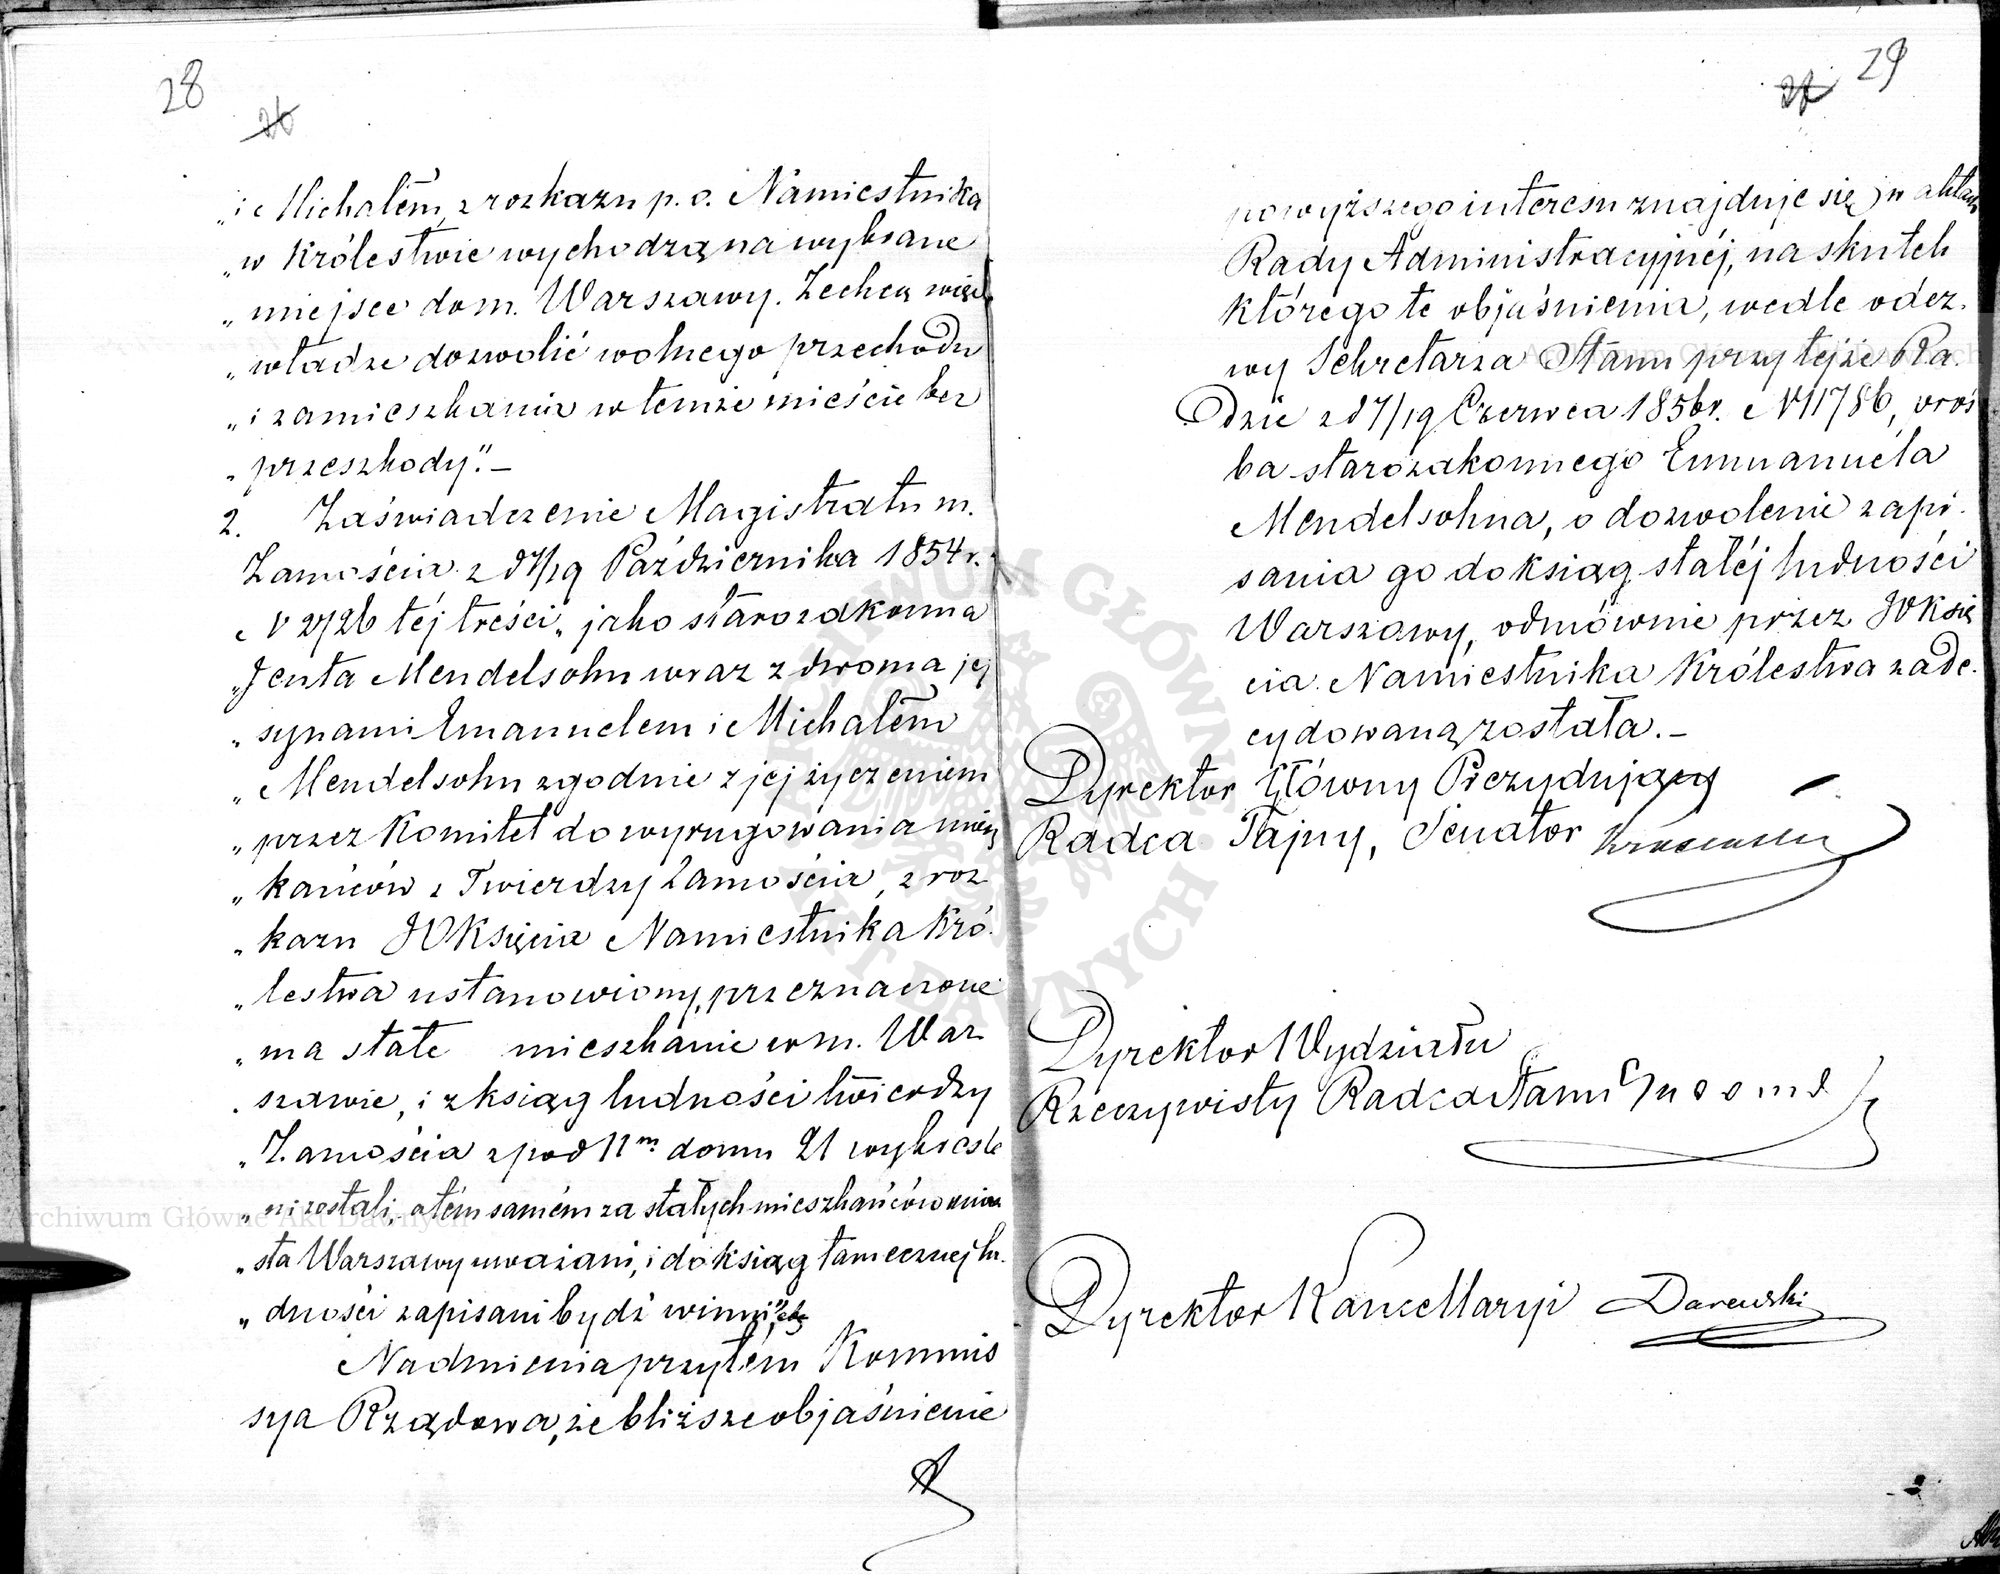 28
26
„ i Michałem, z rozkazu p. o. Namiestnika
„ w Królestwie wychodzą na wybrane
„ miejsce do m. Warszawy. Zechcą więc
„ władze dozwolić wolnego przechodu
„ i zamieszkania w temże mieście bez
„ przeszkody." –
2. Zaświadczenie Magistratu m.
Zamościa z d 7/19 Października 1854 r.
N 2726 téj treści „ jako starozakonna
„ Jenta Mendelsohn wraz z dwoma jej
„ synami Emanuelem i Michałem
„ Mendelsohn zgodnie z jej życzeniem
„ przez Komitet do wyrugowania miesz
„ kańców z Twierdzy Zamościa, z roz
„ kazu JO Księcia Namiestnika Kró-
„ lestwa ustanowiony, przeznaczone
„ ma stałe mieszkanie w m. War
„ szawie, i z ksiąg ludności twierdzy
„ Zamościa z pod Nm domu 21 wykreśle
„ ni zostali, a tém samém za stałych mieszkańców mia
„ sta Warszawy uważani, i do ksiąg tamecznej lu-
„ dności zapisani bydź winni"
Nadmienia przytém Kommis
sya Rządowa, że bliższe objaśnienie
29
27
powyższego interesu znajduje się w aktach
Rady Administracyjnéj, na skutek
którego te objaśnienia, wedle odez-
wy Sekretarza Stanu przy tejże Ra-
dzie z d 7/19 Czerwca 1856 r. N 11786, proś
ba starozakonnego Emmanuela
Mendelsohna, o dozwolenie zapi-
sania go do ksiąg stałéj ludności
Warszawy, odmównie przez JO Księ
cia Namiestnika Królestwa zade-
cydowaną została. –
Dyrektor Główny Prezydujący
Radca Tajny, Senator
Dyrektor Wydziału
Rzeczywisty Radca Stanu
Dyrektor Kancellaryi Darewski
ARCHIWUM GŁÓWNE AKT DAWNYCH
Archiwum Główne Akt Dawnych